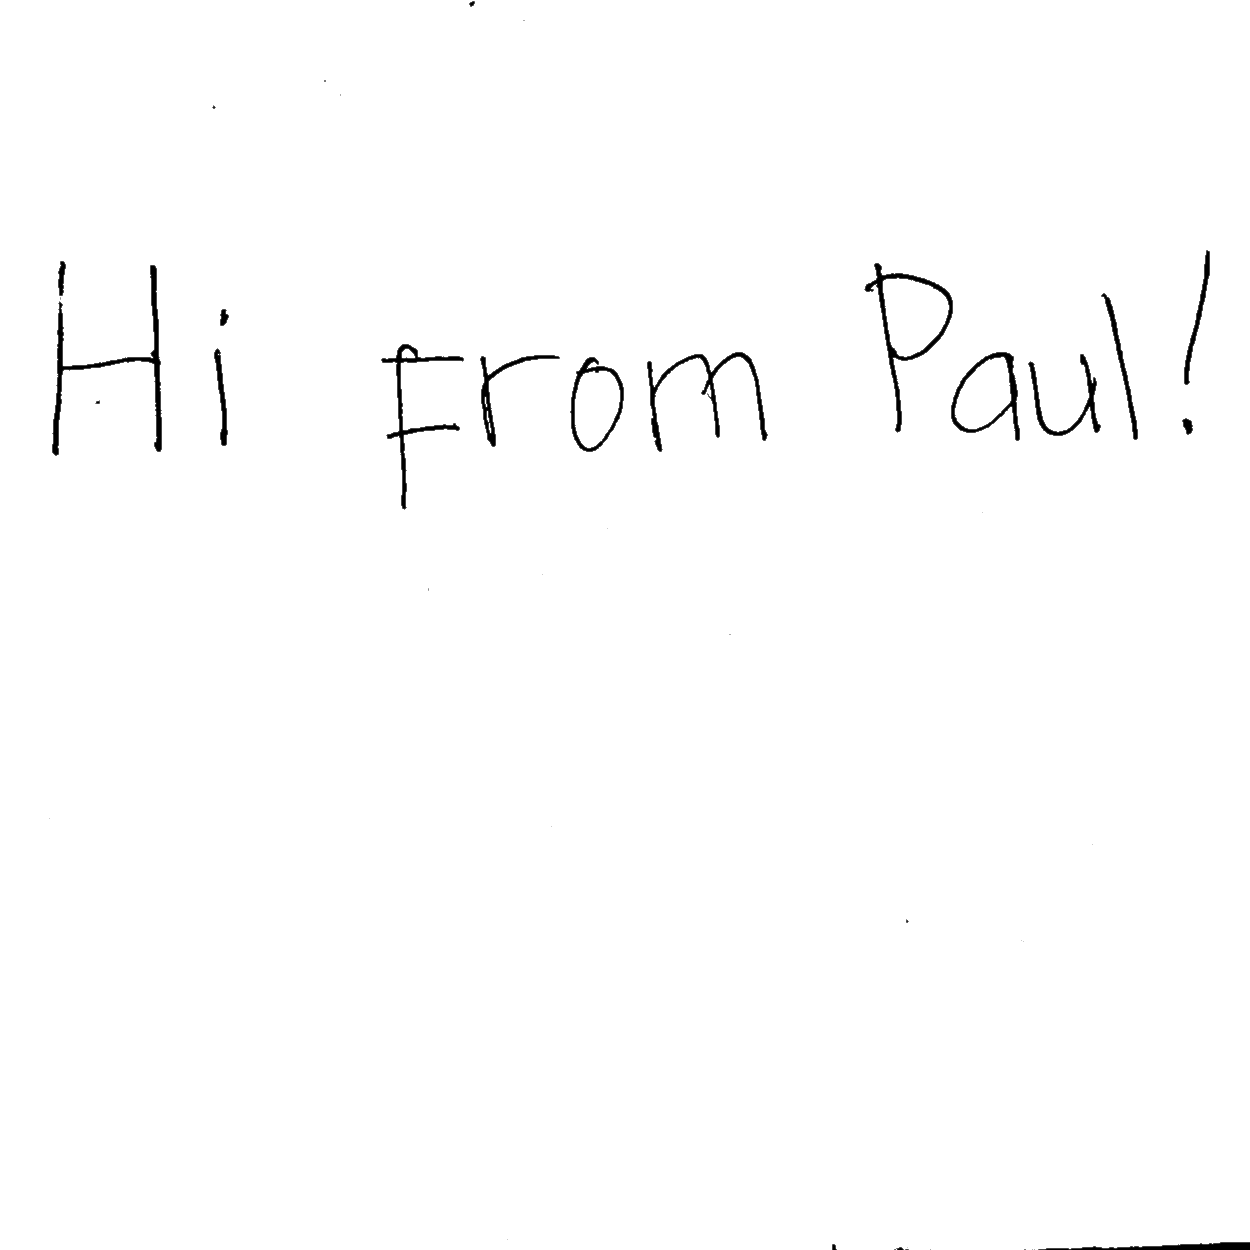 Hi From Paul!